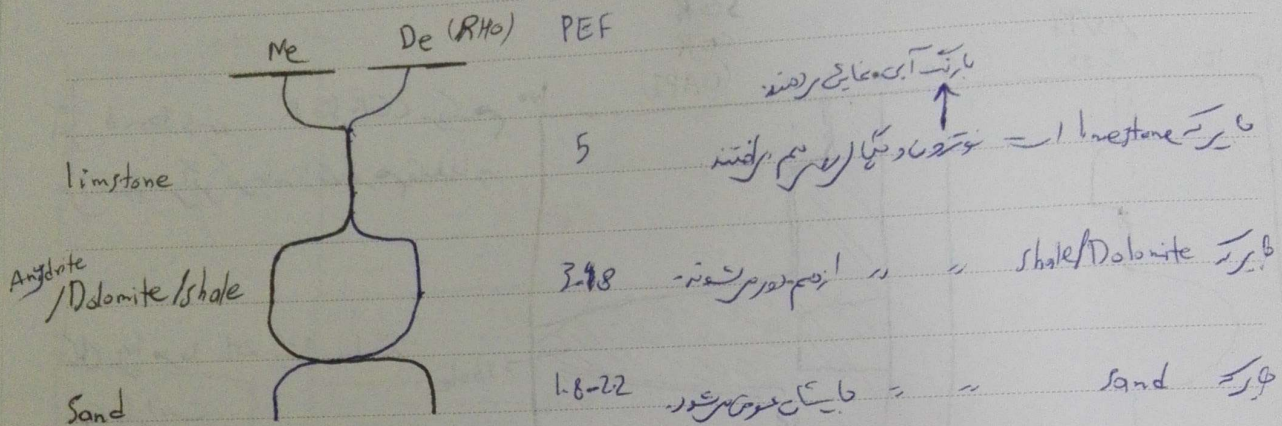 Ne De (RHO) PEF
با رنگ آبی نمایش می‌دهند.
limstone 5 جایی که limestone است = نوترون و دنسیتی روی هم می‌افتند
Anydrite
/Dolomite/shale جایی که shale/Dolomite " " از هم دور می‌شوند.
Sand 1.8-2.2 جایی که sand " " جایشان عوض می‌شود.